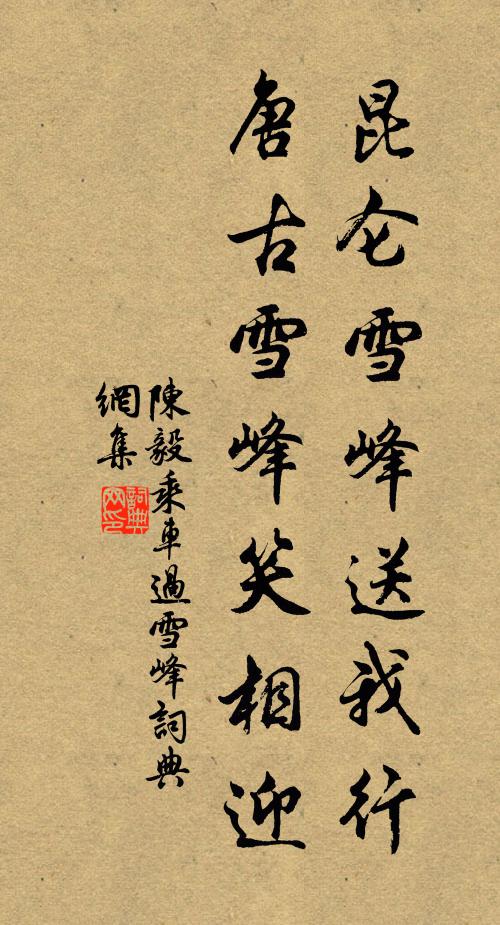 昆仑雪峰送我行
唐古雪峰笑相迎
陳毅乘車過雪峰詞典
網集
詞典
网印